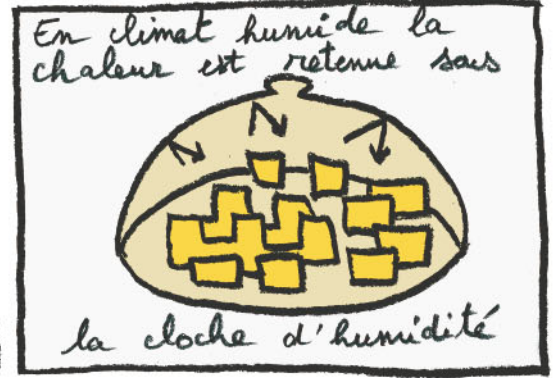 En climat humide la
chaleur est retenue sous
la cloche d'humidité